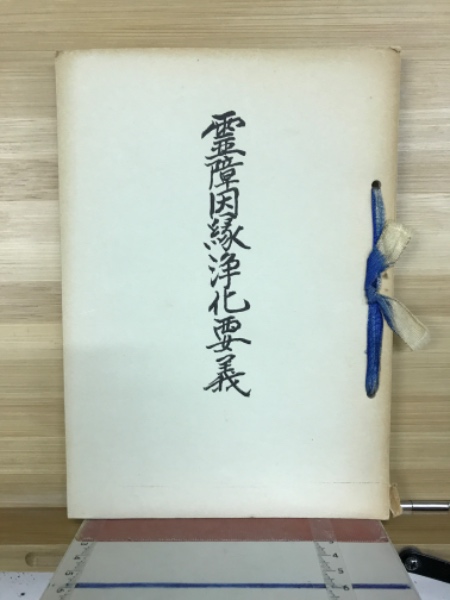 霊障因縁浄化要義